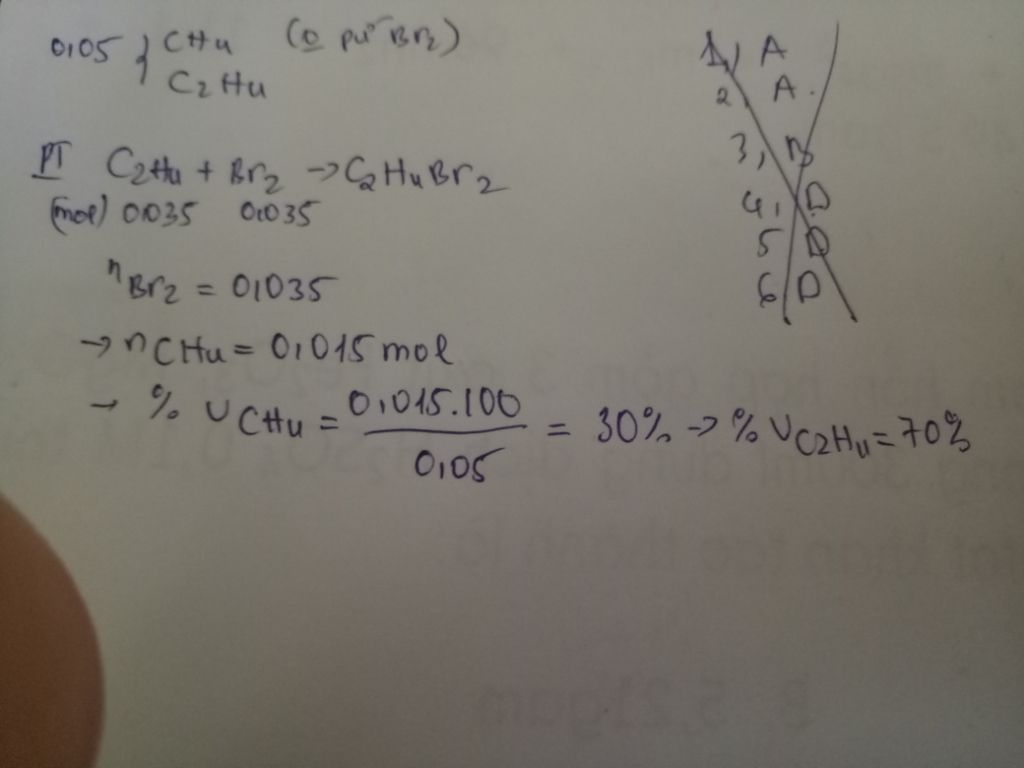 0,05 { CH4 (o pư Br2)
C2H4
PT C2H4 + Br2 → C2H4Br2
(mol) 0,035 0,035
nBr2 = 0,035
→ nCH4 = 0,015 mol
→ % VCH4 = 0,015.100 / 0,05 = 30% → % VC2H4 = 70%
1, A
2, A.
3, B
4, D
5 D
6 D